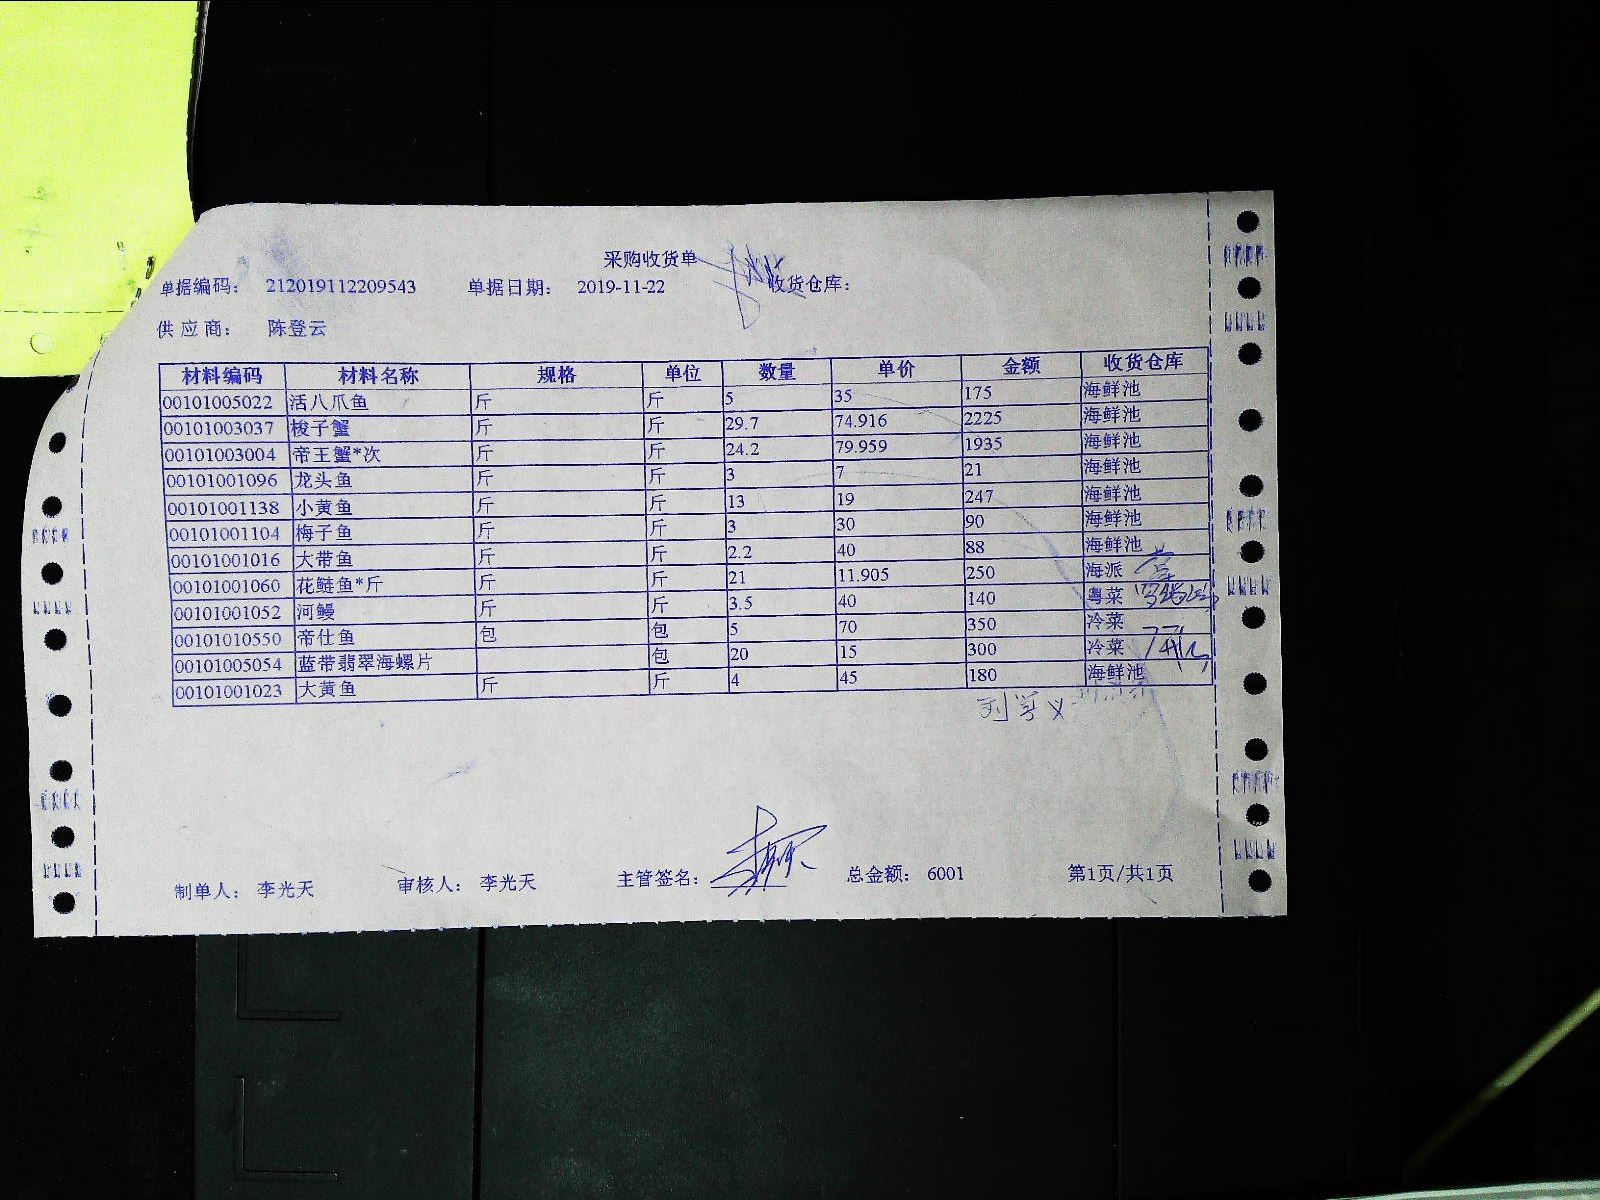 采购收货单
单据编码： 212019112209543 单据日期： 2019-11-22 收货仓库：
供应商： 陈登云
材料编码 材料名称 规格 单位 数量 单价 金额 收货仓库
00101005022 活八爪鱼 斤 斤 5 35 175 海鲜池
00101003037 梭子蟹 斤 斤 29.7 74.916 2225 海鲜池
00101003004 帝王蟹*次 斤 斤 24.2 79.959 1935 海鲜池
00101001096 龙头鱼 斤 斤 3 7 21 海鲜池
00101001138 小黄鱼 斤 斤 13 19 247 海鲜池
00101001104 梅子鱼 斤 斤 3 30 90 海鲜池
00101001016 大带鱼 斤 斤 2.2 40 88 海鲜池
00101001060 花鲢鱼*斤 斤 斤 21 11.905 250 海派
00101001052 河鳗 斤 斤 3.5 40 140 粤菜
00101010550 帝仕鱼 包 包 5 70 350 冷菜
00101005054 蓝带翡翠海螺片 包 20 15 300 冷菜
00101001023 大黄鱼 斤 斤 4 45 180 海鲜池
制单人： 李光天 审核人： 李光天 主管签名： 总金额： 6001 第1页/共1页